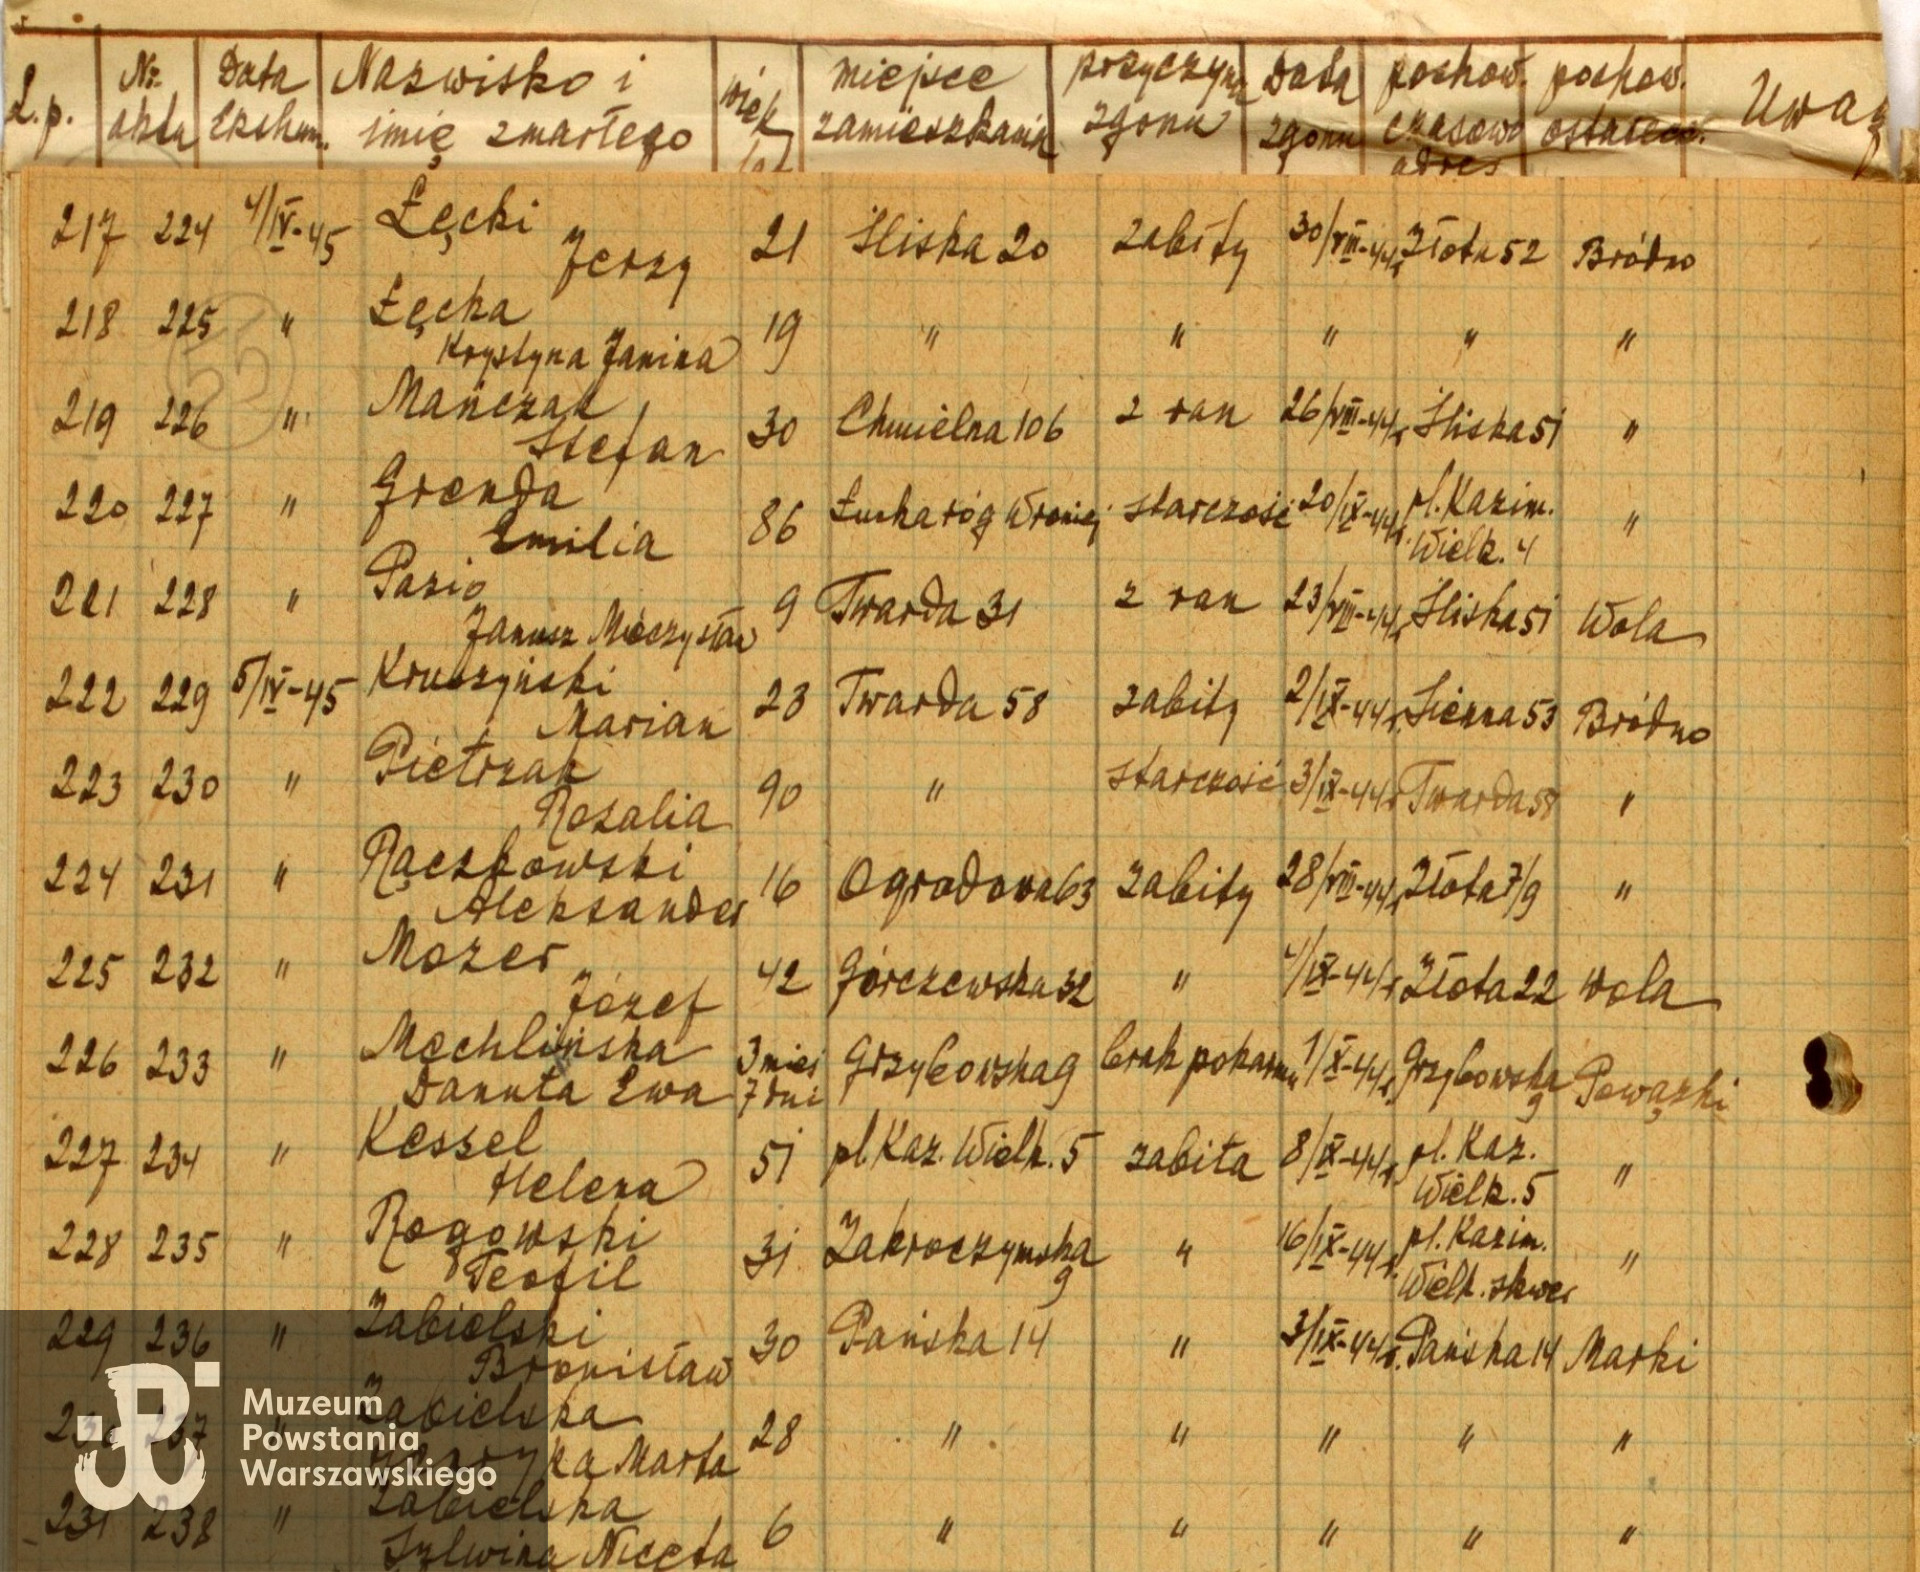 L.p. Nr. aktu Data Ekshum. Nazwisko i imię zmarłego wiek lat miejsce zamieszkania przyczyna zgonu Data zgonu pochow. czasowo adres pochow. ostatecz.
217 224 4/IV-45 Łęcki Jerzy 21 Śliska 20 zabity 30/VIII-44r. Złota 52 Bródno
218 225 " Łęcka Krystyna Janina 19 " " " " "
219 226 " Mańczak Stefan 30 Chmielna 106 z ran 26/VIII-44r. Śliska 51 "
220 227 " Grenda Emilia 86 Łucka róg Wroniej starczość 20/IX-44r. pl. Kazim. Wielk. 4 "
221 228 " Pazio Janusz Mieczysław 9 Twarda 31 z ran 23/VIII-44r. Śliska 51 Wola
222 229 5/IV-45 Kruszyński Marian 23 Twarda 58 zabity 2/IX-44r. Sienna 53 Bródno
223 230 " Pietrzak Rozalia 90 " starczość 3/IX-44r. Twarda 58 "
224 231 " Rączkowski Aleksander 16 Ogrodowa 63 zabity 28/VIII-44r. Złota 7/9 "
225 232 " Mozer Józef 42 Górczewska 32 " 4/IX-44r. Złota 22 Wola
226 233 " Mechlińska Danuta Ewa 3 mies 7 dni Grzybowska 9 brak pokarmu 1/X-44r. Grzybowska 9 Powązki
227 234 " Kessel Helena 51 pl. Kaz. Wielk. 5 zabita 8/IX-44r. pl. Kaz. Wielk. 5 "
228 235 " Rogowski Teofil 31 Zakroczymska 9 " 16/IX-44r. pl. Kazim. Wielk. skwer "
229 236 " Zabielski Bronisław 30 Pańska 14 " 3/IX-44r. Pańska 14 Marki
230 237 " Zabielska Marta 28 " " " " "
231 238 " Zabielska Sylwina Niceta 6 " " " " "
Muzeum
Powstania
Warszawskiego